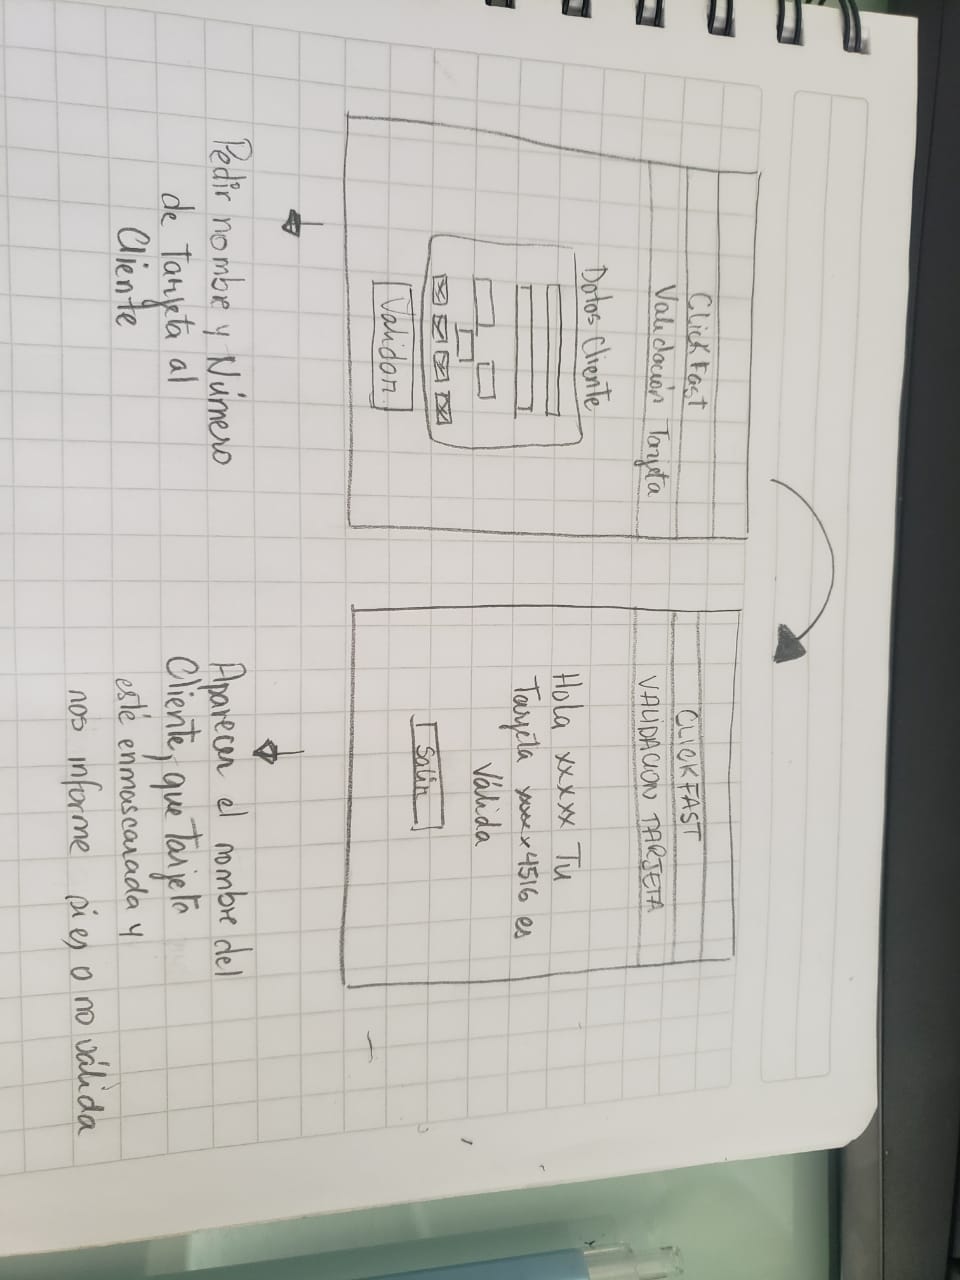 Click Fast
Validación Tarjeta
Datos Cliente
Validar
Pedir nombre y Número
de tarjeta al
Cliente
CLICK FAST
VALIDACION TARJETA
Hola xxxx Tu
Tarjeta xxxxx4516 es
Válida
Salir
Aparecer el nombre del
Cliente, que tarjeta
esté enmascarada y
nos informe si es o no válida